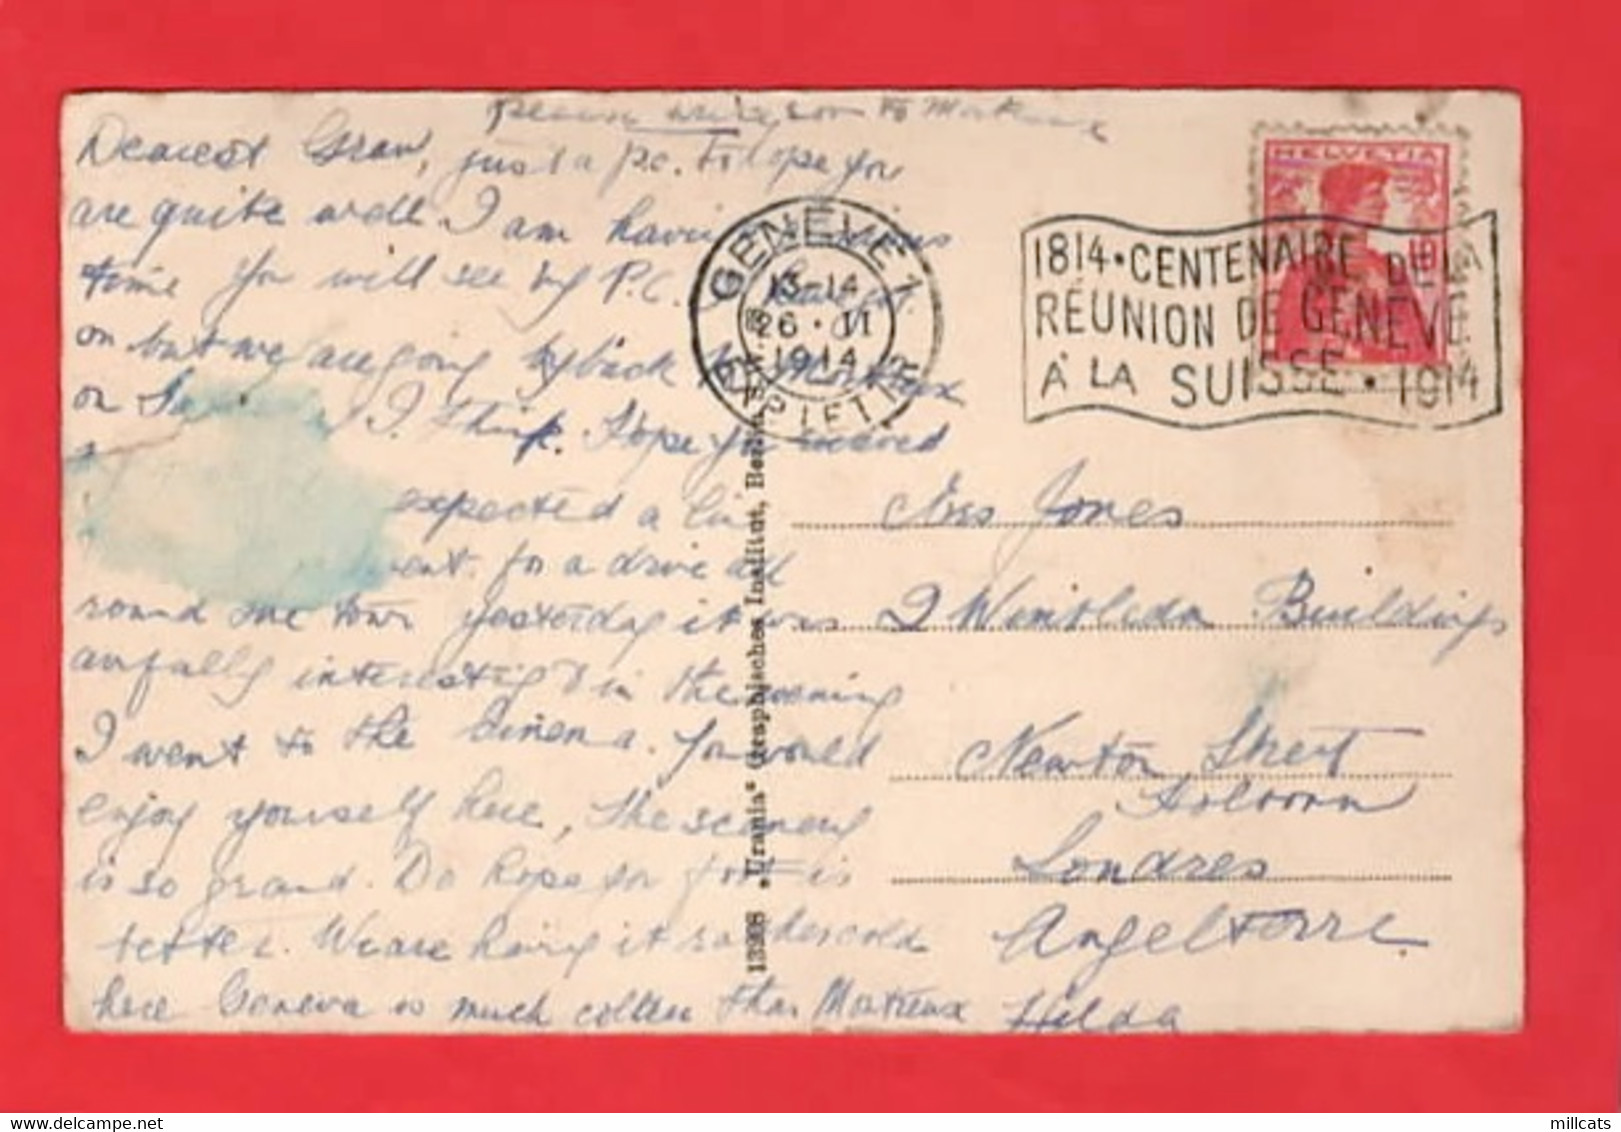 please write soon to Montreux
Dearest Gran, just a p.c. to hope you
are quite well. I am having
time you will see by P.C.
on but we are going by back to Montreux
on I think. I hope you received
expected a line
went for a drive all
round the town yesterday it was
awfully interesting & in the evening
I went to the Cinema. You would
enjoy yourself here, the scenery
is so grand. Do hope your foot is
better. We are having it rather cold
here Geneva is much colder than Montreux
Hilda
GENÈVE 1
13-14
26·II
1914
EXP. LETTR.
1814·CENTENAIRE DE LA
RÉUNION DE GENÈVE
À LA SUISSE·1914
HELVETIA
10
Mrs Jones
2 Wimbledon Buildings
Newton Street
Holborn
Londres
Angelterre
13368 „Urania" Graphisches Institut, Berlin
millcats